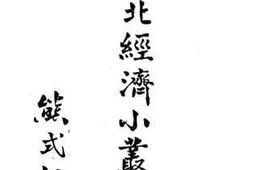 北經濟小叢
熊式